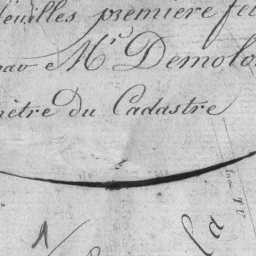 feuilles première feu
par Mr. Demolo
mètre du Cadastre
la
1